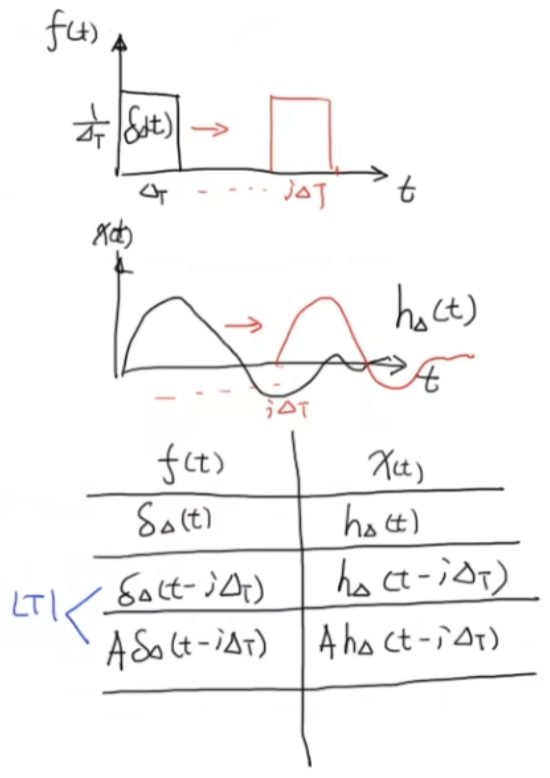 f(t)
1/ΔT δΔ(t)
ΔT iΔT t
x(t)
hΔ(t)
t
iΔT
f(t) x(t)
δΔ(t) hΔ(t)
LTI
δΔ(t-iΔT) hΔ(t-iΔT)
AδΔ(t-iΔT) AhΔ(t-iΔT)